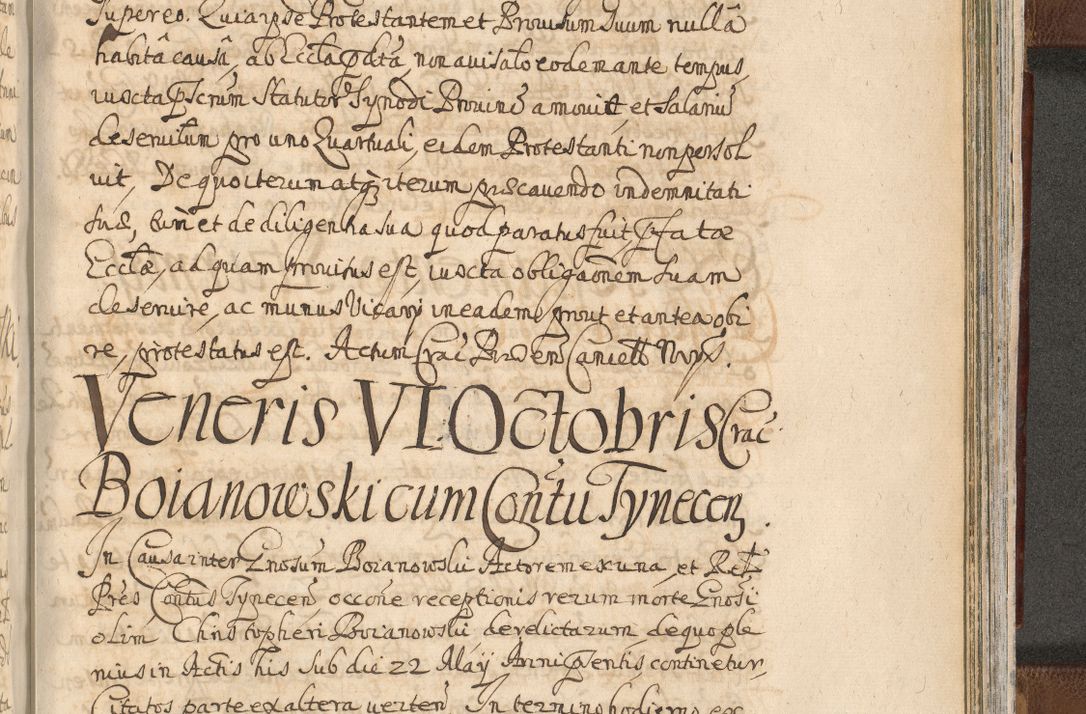 supereo. Quiarpde Protestantem et Provisum suum nullâ
habitâ causâ, ab Eccla pdtâ, non avisato eodem ante tempus,
iuxta pscrum Statutor Synodi Provinc amovit, et Salariu
deservitum pro uno Quartuali, eidem Protestanti non persol
vit, De quo iterum atq iterum præcavendo indemnitati
suæ, et de diligentia sua quod paratus fuit, pfatæ
Ecclæ, ad quam provitus est, iuxta obligaonem suam
deservire, ac munus Vicarij in eadem, prout et antea obi
re, protestatus est. Actum Crac
Veneris VI. Octobris Crac
Boianowski cum Contu Tynecen.
In Causa inter Gnosum Boianowski Actorem ex una, et Rel
Pres Contus Tynecen, occone receptionis rerum morte Gnosi
olim Christopheri Boianowski derelictarum de quo ple
nius in Actis his sub die 22 Maij Anni psentis continetur,
Citatos parte ex altera verten. In termino hodierno ex